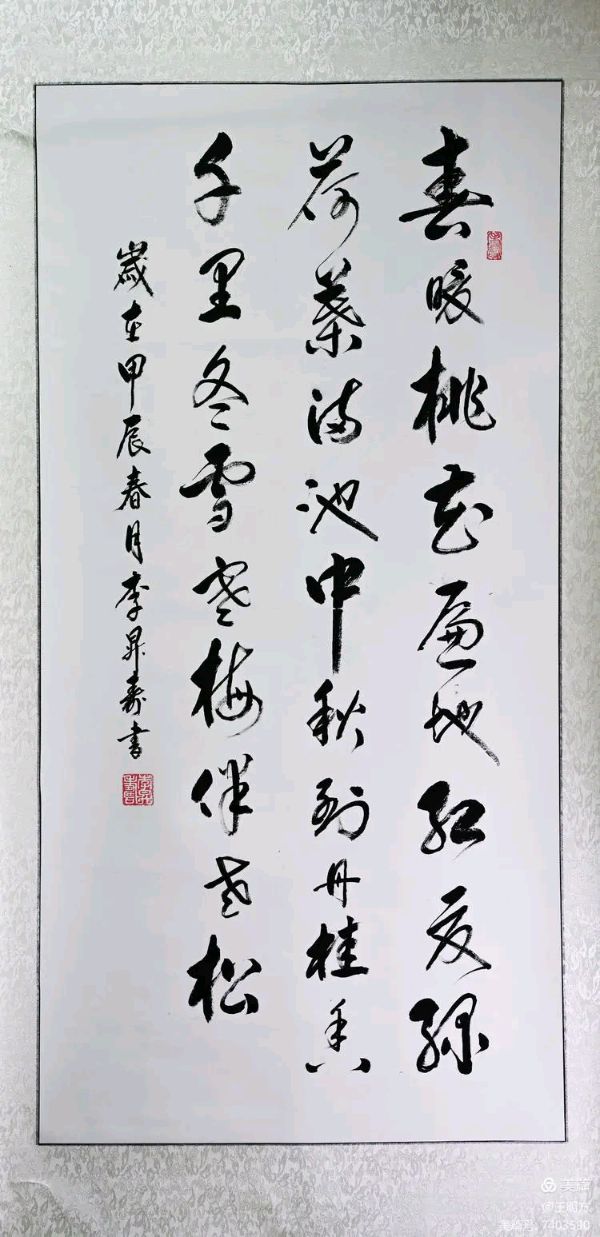 春暖桃花遍地红夏绿
荷叶满池中秋到丹桂香
千里冬雪寒梅伴老松
岁在甲辰春月李昇寿书
美篇
@王明方
美篇号:7403590